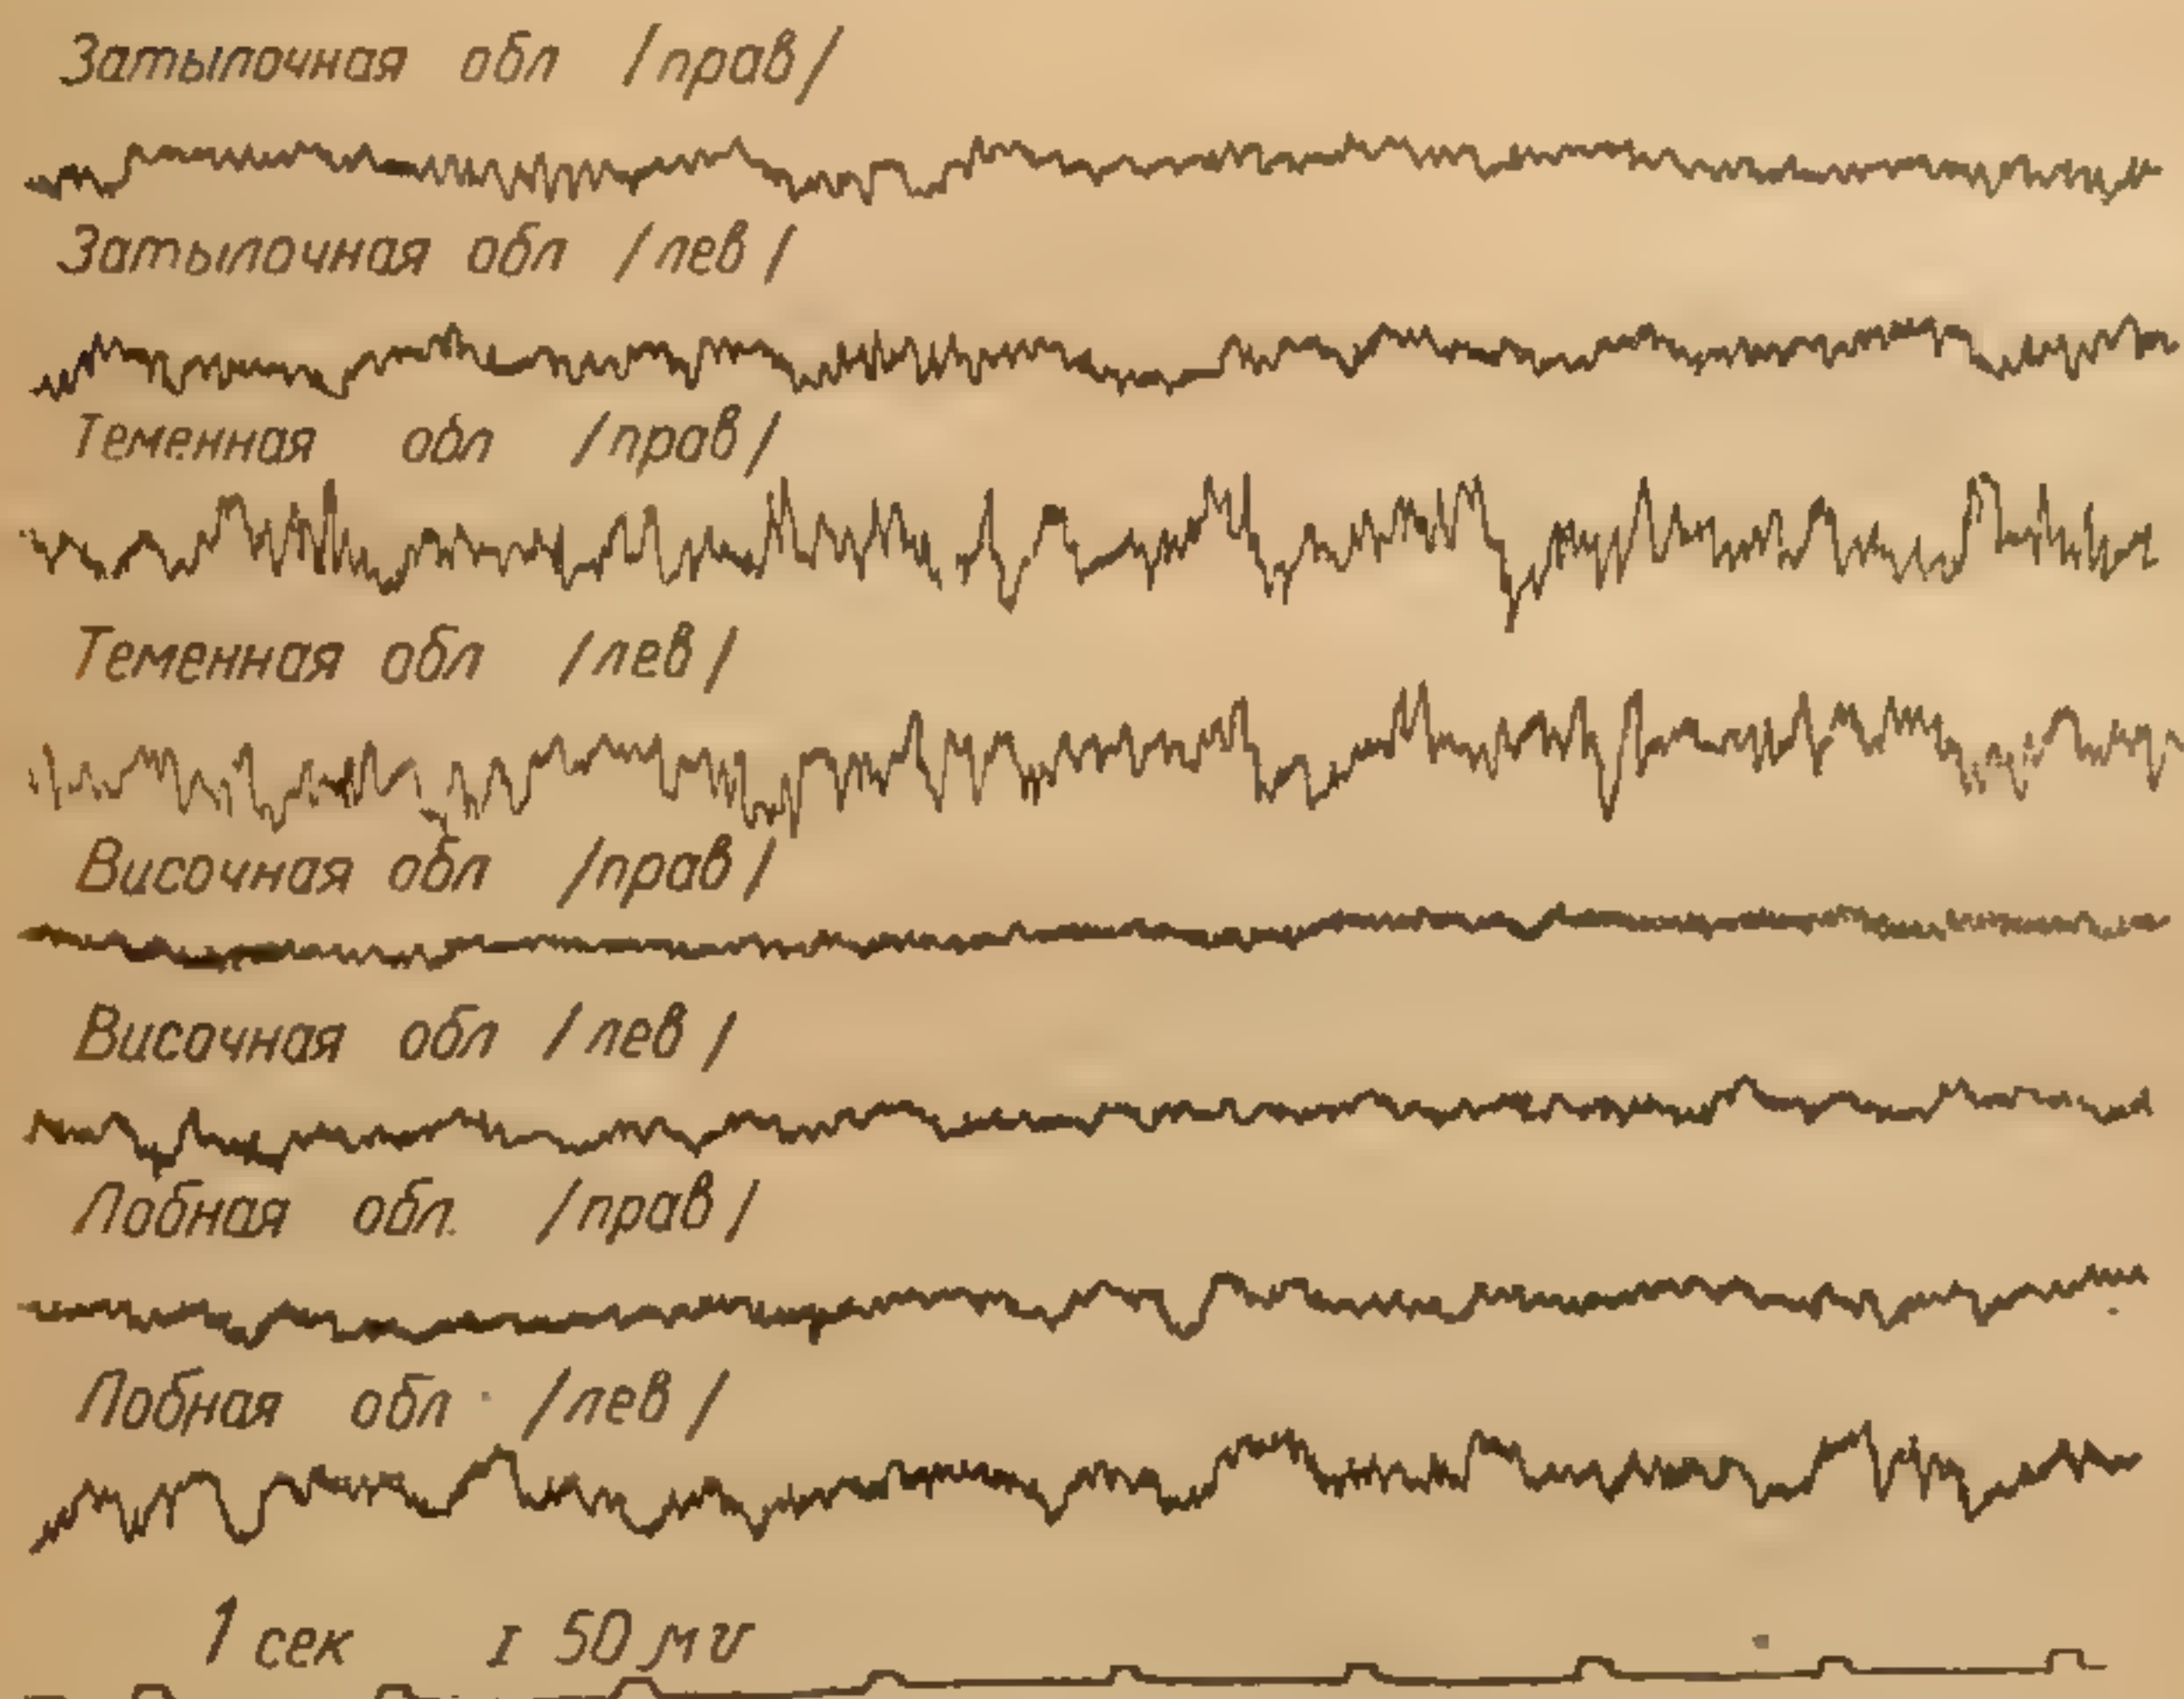 Затылочная обл /прав/
Затылочная обл /лев/
Теменная обл /прав/
Теменная обл /лев/
Височная обл /прав/
Височная обл /лев/
Лобная обл. /прав/
Лобная обл. /лев/
1 сек I 50 мv